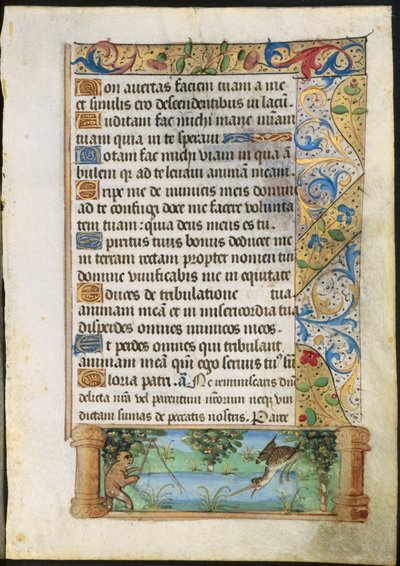 Non avertas faciem tuam a me
et similis ero descendentibus in lacū.
Auditam fac michi mane miam
tuam quia in te speravi
Notam fac michi viam in qua ā
bulem q̄ ad te levavi animam meam.
Eripe me de inimicis meis domine
ad te confugi doce me facere volunta
tem tuam: quia deus meus es tu.
Spiritus tuus bonus deducet me
in terram rectam propter nomen tuū
domine vivificabis me in equitate
Educes de tribulatione tua
animam meā et in misericordia tua
disperdes omnes inimicos meos.
Et perdes omnes qui tribulant
animam meā qm̄ ego servus tuꝰ sū
Gloria patri. ā. Ne reminiscaris dn̄e
delicta nr̄a vel parentum nr̄orum neqꝫ vin
dictam sumas de peccatis nostris. Parce